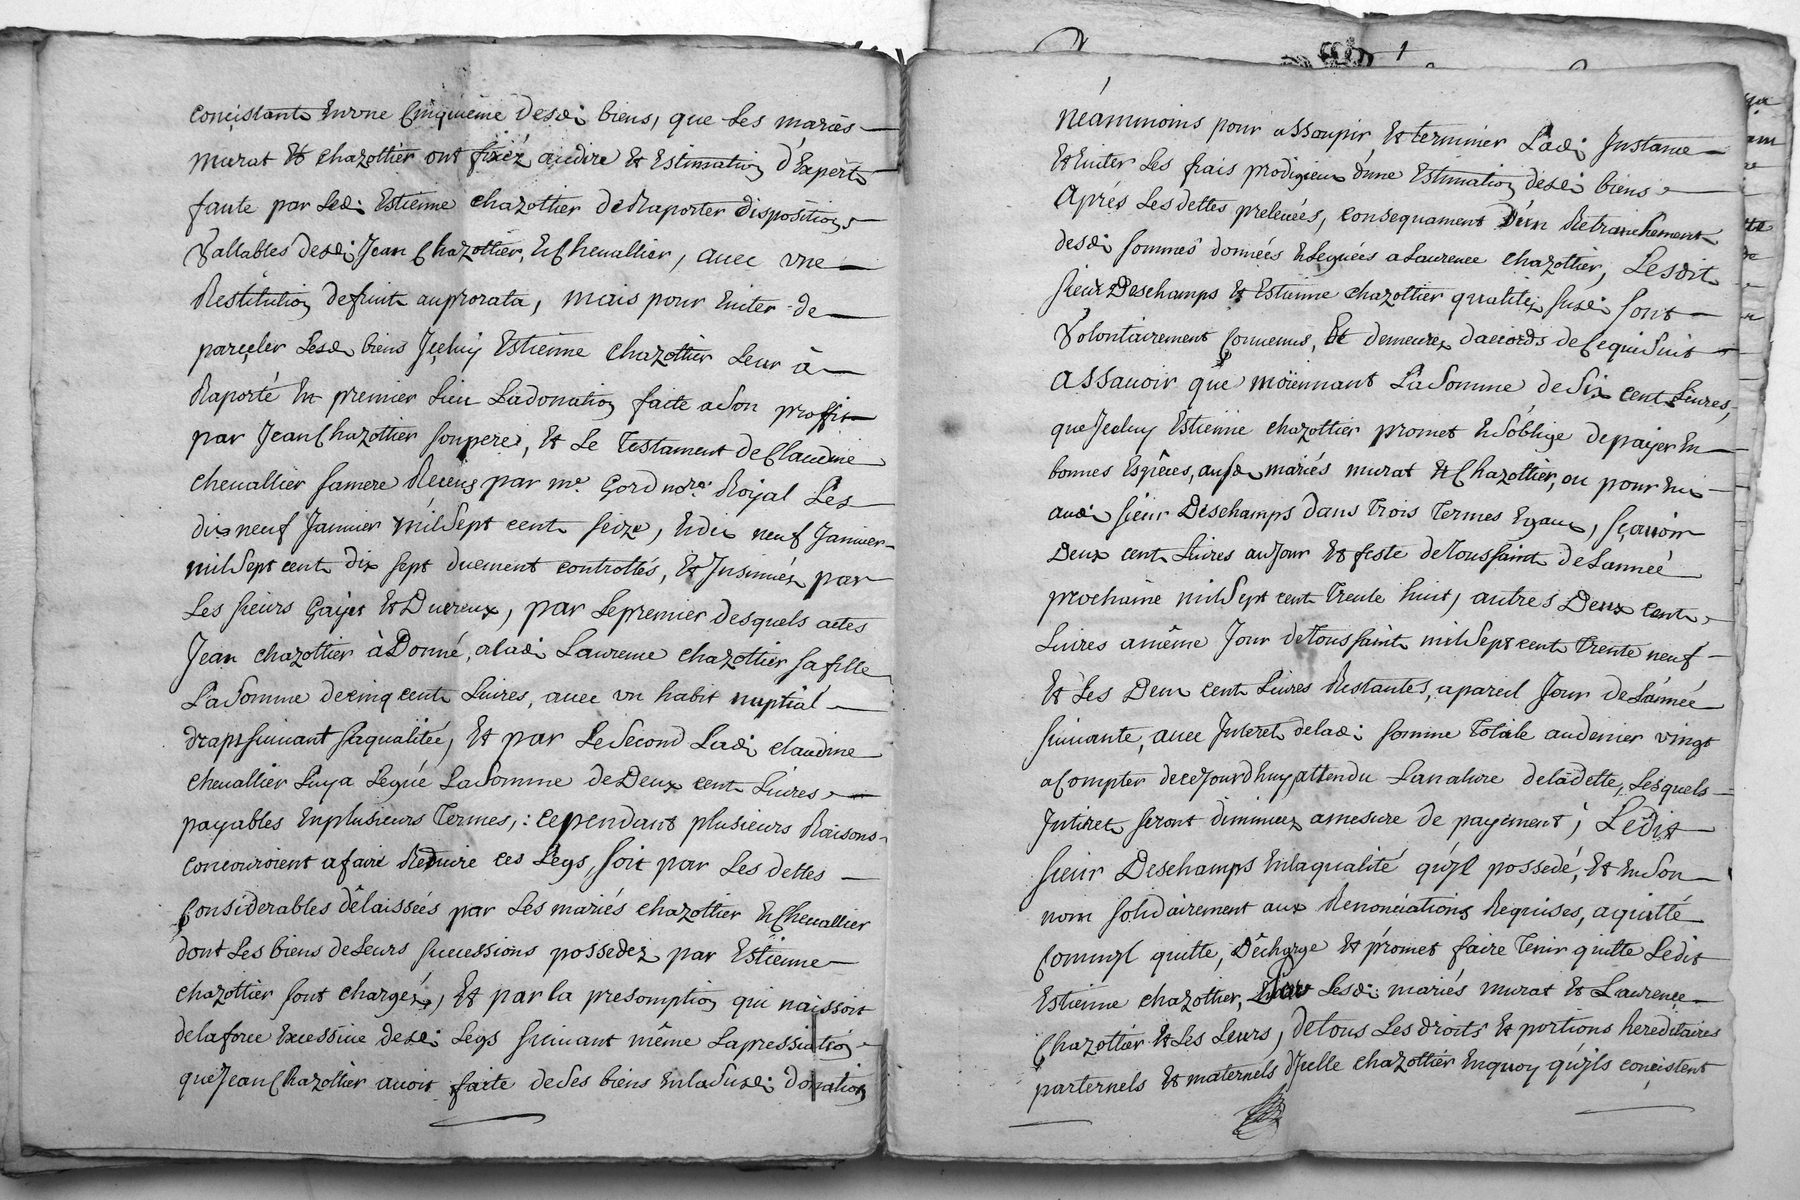 concistante En vne Cinquieme desd: biens, que Les mariés
murat Et chazottier ont fixéz audire Et Estimation d'Experts
faute par Led: Estienne chazottier de Raporter disposition
Vallables desd: Jean Chazottier, & Cheuallier, auec vne
Restitution de fruits auprorata, mais pour Euiter de
parçeler Lesd: biens Jçeluy Estienne chazottier Leur à
Raporté En premier Lieu La donation faite a Son proffit
par Jean Chazottier Son pere, Et Le Testament de Claudine
cheuallier Sa mere Reçeus par me. Gord nore. Royal Les
dix neuf Januier mil Sept cent Seize, & dix neuf Januier
mil Sept cent dix sept duement controllés, Et Jnsinuéz par
Les Sieurs Gayet Et Ducreux, par Le premier desquels actes
Jean chazottier à Donné, a lad: Laurence chazottier Sa fille
La Somme de cinq cent Liures, auec vn habit nuptial
drap suiuant Sa qualitée, Et par Le Second Lad: claudine
cheuallier Luy a Legué La Somme de Deux cent Liures
payables En plusieurs Termes,: cependant plusieurs Raisons
concouroient a faire Reduire ces Legs, Soit par Les dettes
Considerables délaissées par Les mariés chazottier & Cheuallier
dont Les biens de Leurs Successions possedez par Estienne
chazottier Sont chargés, Et par la presomption qui naissoit
de la force Excessiue desd: Legs Suiuant même Lapressiation
que Jean Chazottier auoit faite de Ses biens En la Susd: donation
néammoins pour assoupir Et terminer Lad: Jnstance
Et Euiter Les frais prodigieux d'une Estimation desd: biens
Aprés Les dettes preleuées, consequament D'un Retranchement
desd: Sommes données & Leguées a Laurence chazottier, Lesdit
Sieur Deschamps & Estienne chazottier qualitez Susd: Sont
Volontairement Conuenus, Et demeurez daccords de Ce qui Suit
Assauoir que moïennant La Somme de Six cent Liures,
que Jceluy Estienne chazottier promet & S'oblige de payer En
bonnes Espêces, ausd: mariés murat & Chazottier, ou pour Eux
aud: Sieur Deschamps dans Trois Termes Egaux, Sçauoir
Deux cent Liures au Jour Et feste de Toussaint de L'année
prochaine mil Sept cent Trente huit, autres Deux cent
Liures a même Jour de Toussaint mil Sept cent Trente neuf
Et Les Deux cent Liures Restantes, a pareil Jour de L'année
Suiuante, auec Jnterêt delad: Somme Totale au denier vingt
a Compter de ce Jourdhuy attendu La nature de la dette, Lesquels
Jnterêt Seront diminuez a mesure de payement; Ledit
Sieur Deschamps En la qualité qu'Jl possede, Et En Son
nom Solidairement aux Renonciations Requises, a quitté
Comm'Jl quitte, Décharge Et promet faire Tenir quitte Ledit
Estienne chazottier, Lesd: mariés murat Et Laurence
Chazottier Et Les Leurs, de tous Les droits Et portions hereditaires
parternels Et maternels d'Jcelle chazottier En quoy qu'Jls concistent